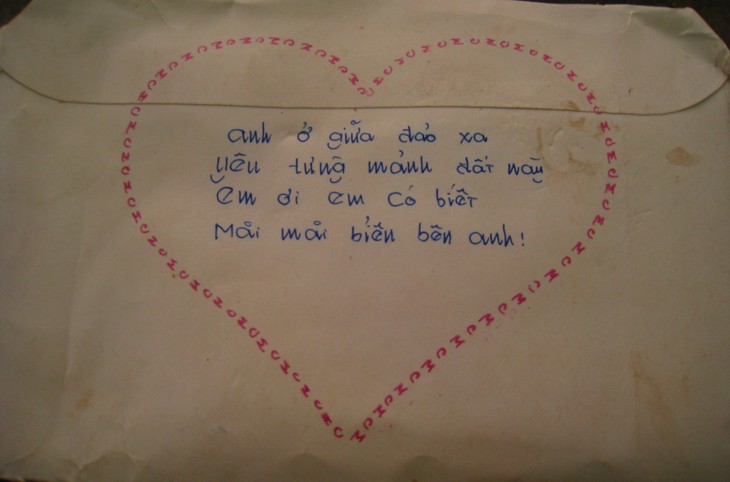 anh ở giữa đảo xa
yêu từng mảnh đất này
Em ơi em có biết
Mãi mãi biển bên anh!